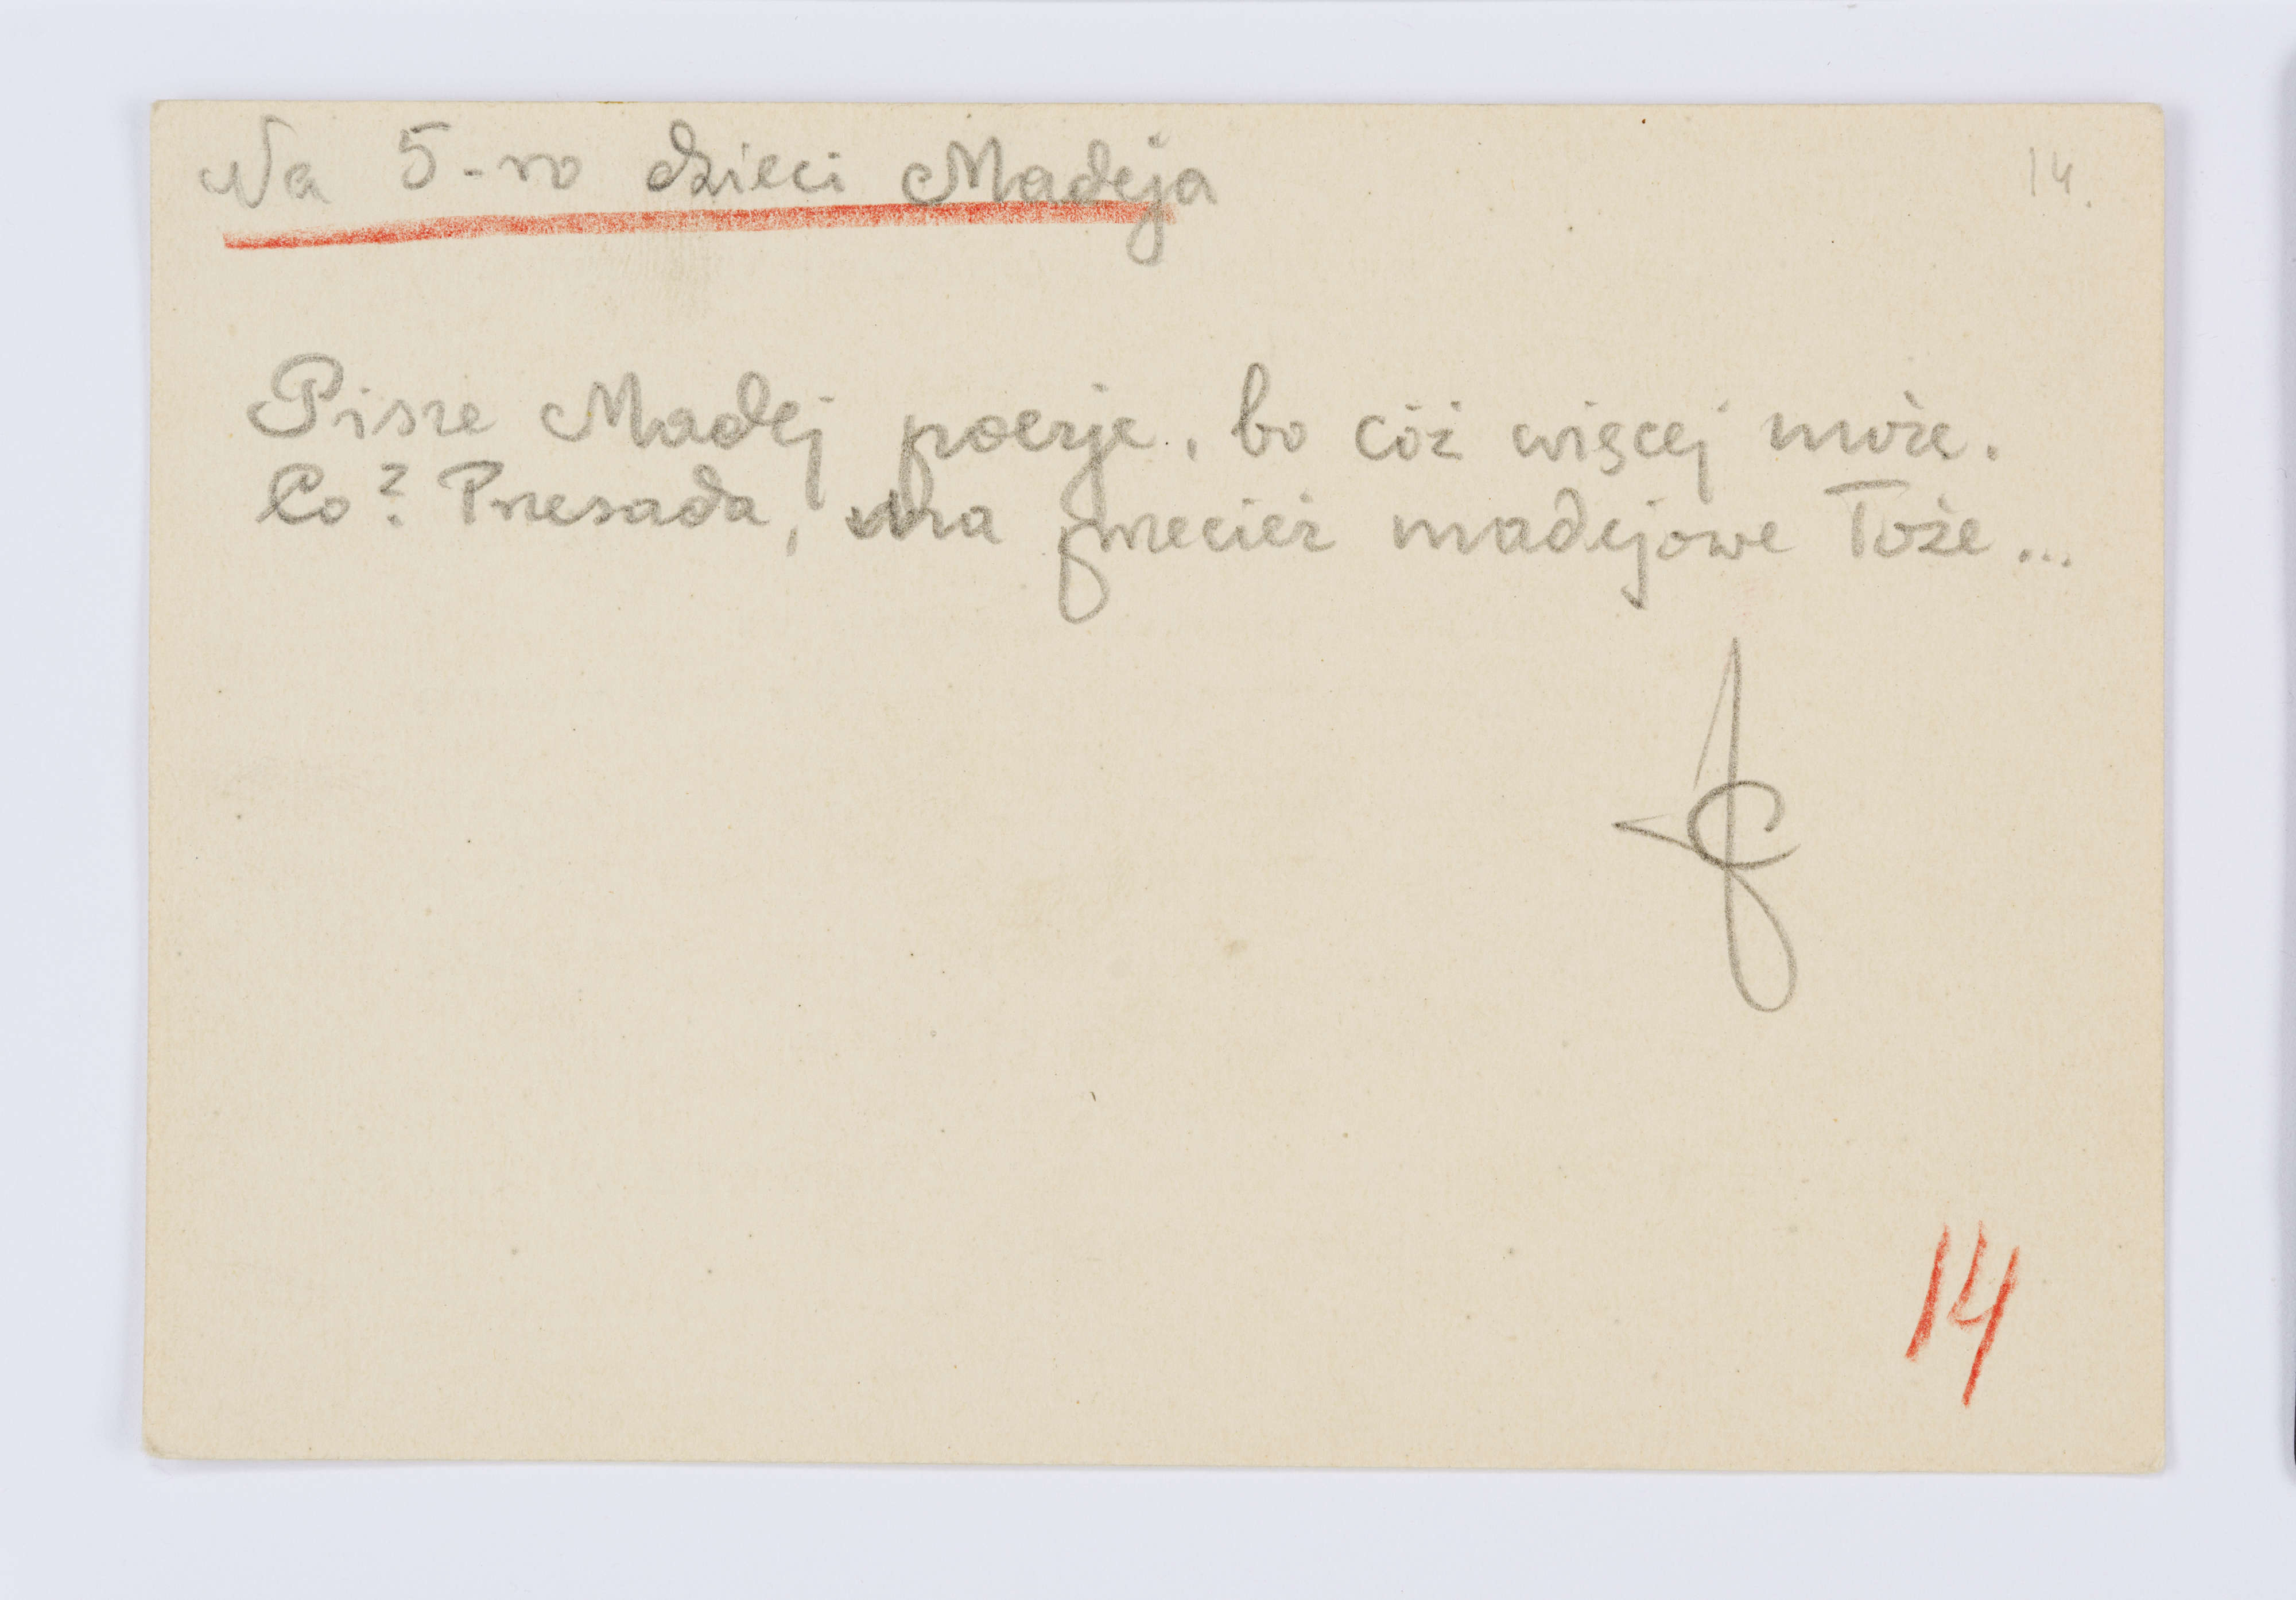 Na 5-ro dzieci Madeja
14.
Pisze Madej poezje, bo cóż więcej może.
Co? Przesada, ma przecież madejowe łoże...
14